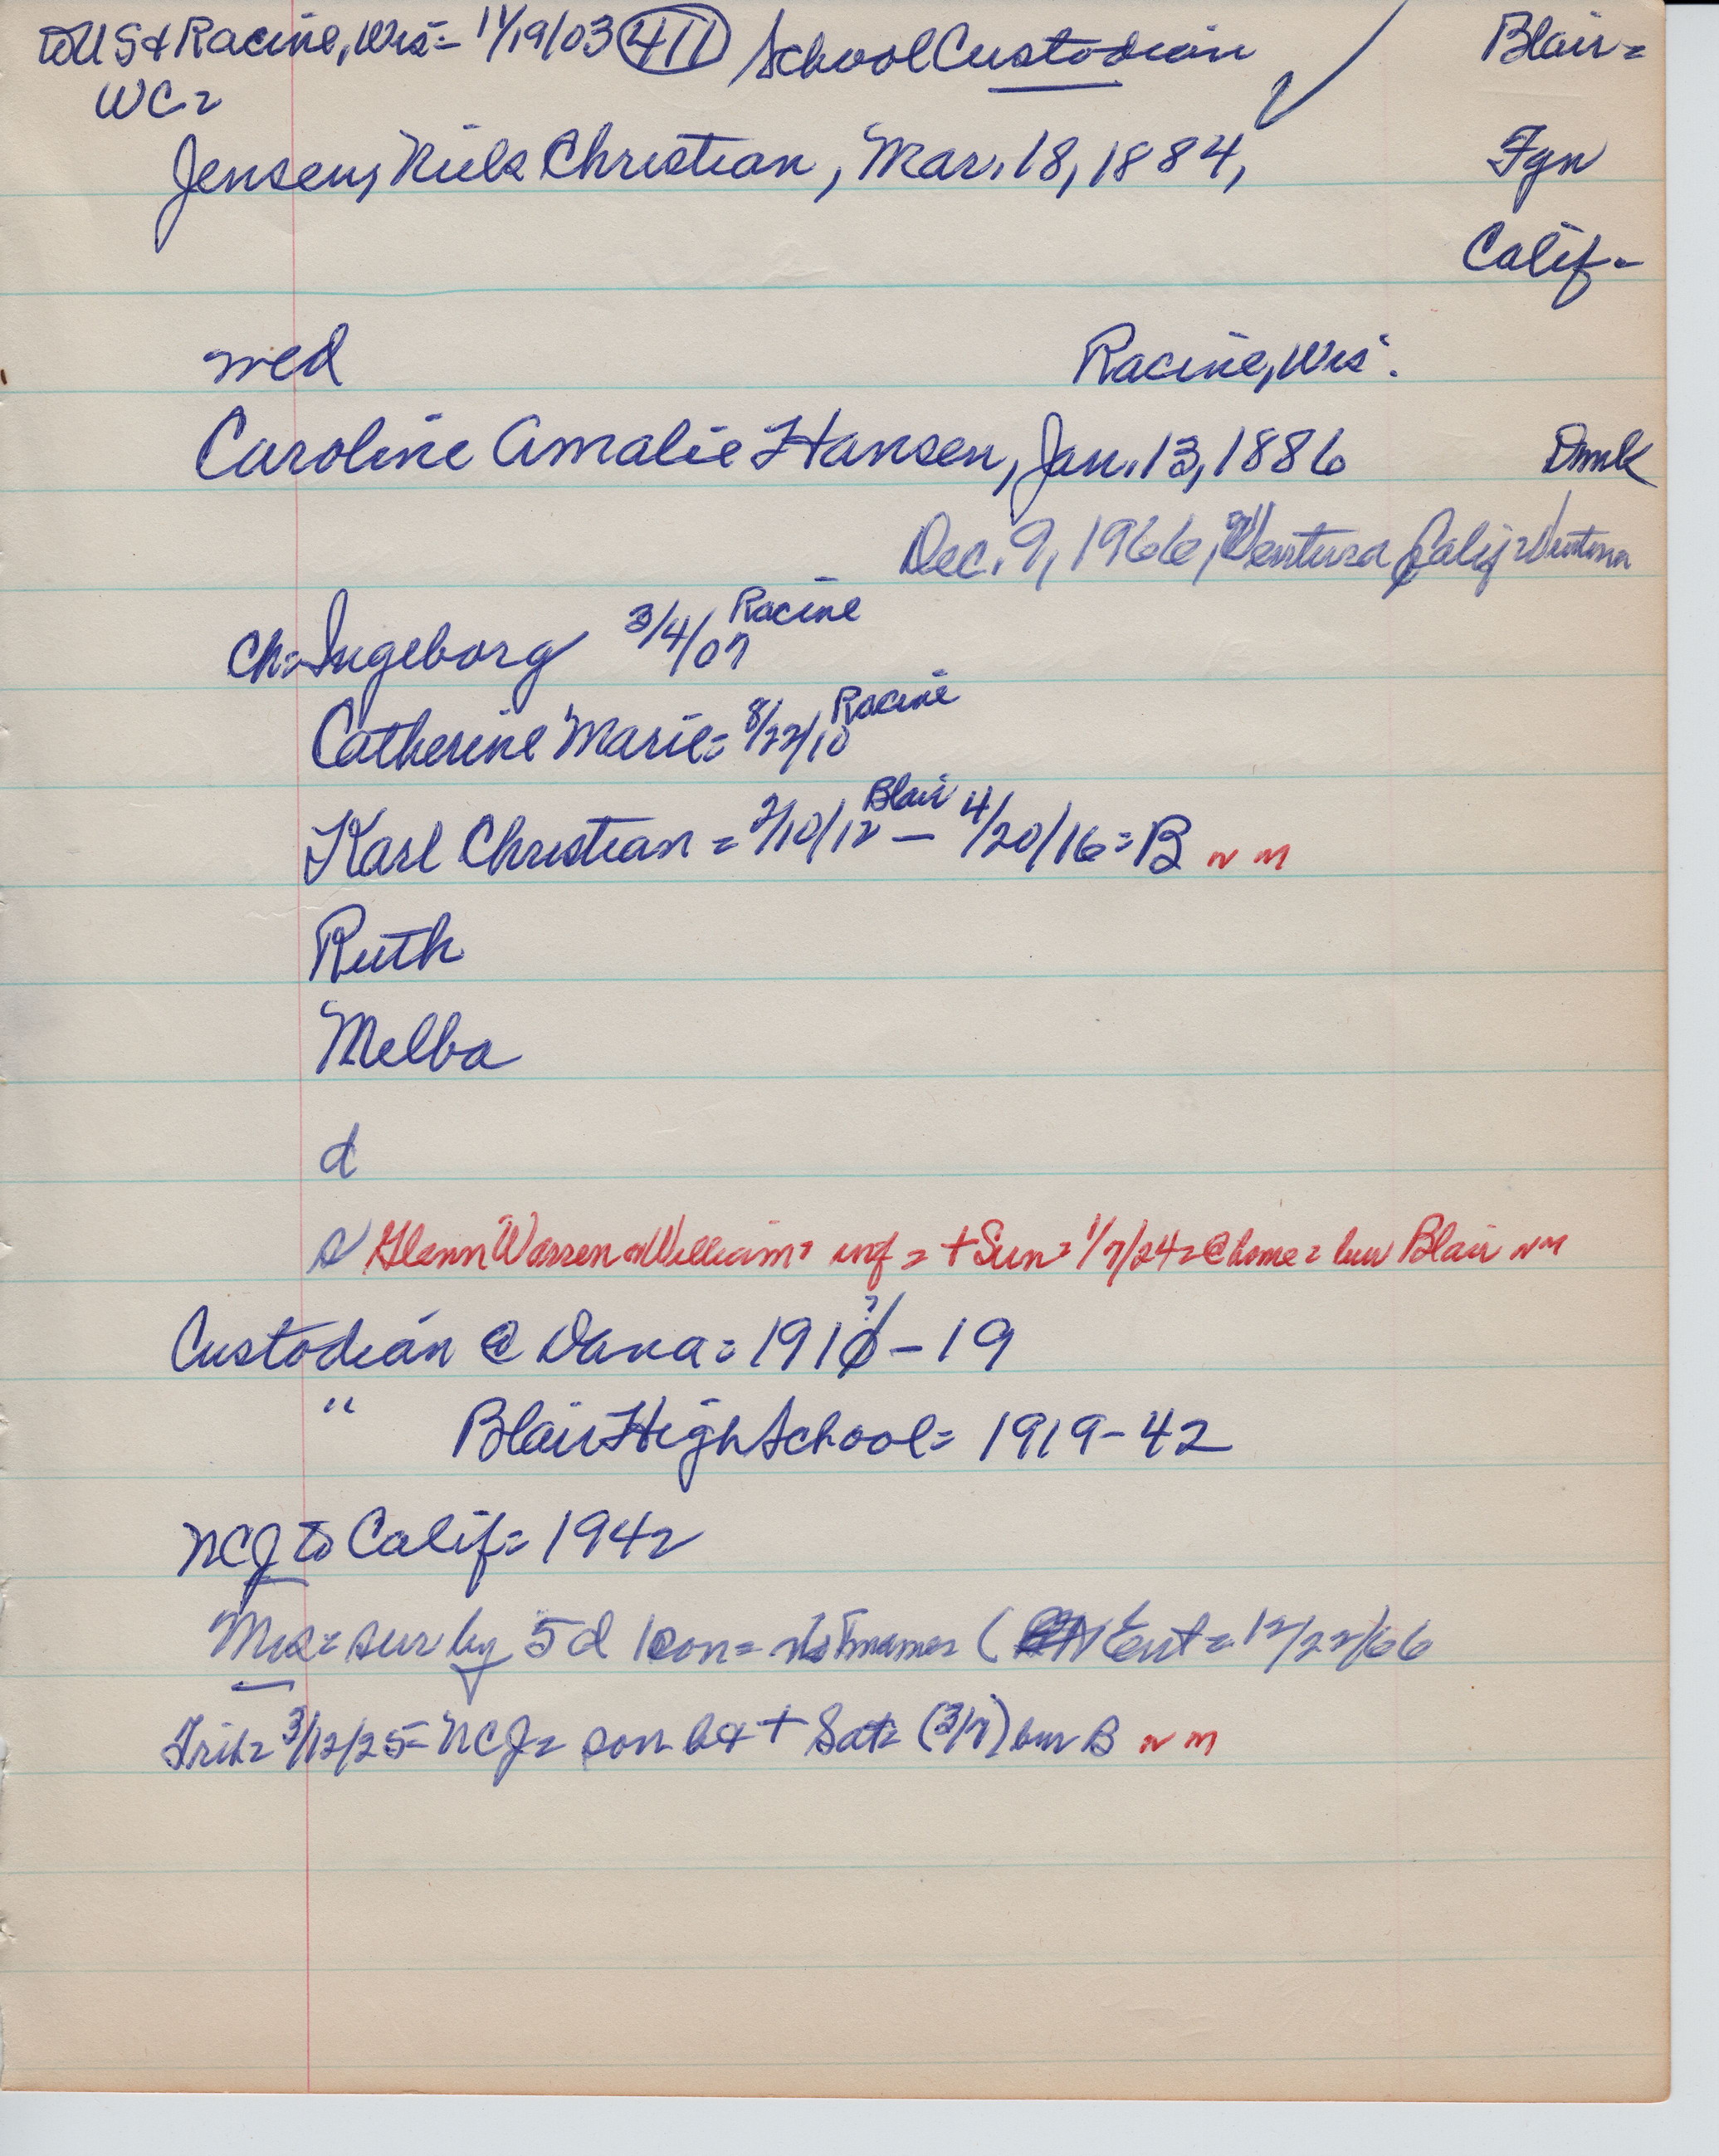 to US & Racine, Wis = 11/19/03 411 School Custodian Blair=
WC=
Jensen, Niels Christian, Mar. 18, 1884, Fyn
Calif-
wed Racine, Wis.
Caroline Amalie Hansen, Jan. 13, 1886 Dmk
Dec. 9, 1966, Ventura Calif = Ventura
Ch = Ingeborg 3/4/07 Racine
Catherine Marie = 8/22/10 Racine
Karl Christian = 2/10/12 Blair - 4/20/16 = B nm
Ruth
Melba
d
s Glenn Warren or William = inf = + Sun = 1/7/24 = @ home = bur Blair nm
Custodian @ Dana = 191 - 19
" Blair High School = 1919-42
NCJ to Calif = 1942
Mrs = sur by 5 d 1 son = no names ( Ent = 12/22/66
Trib = 3/12/25 = NCJ = son + Sat = (3/7) bur B nm